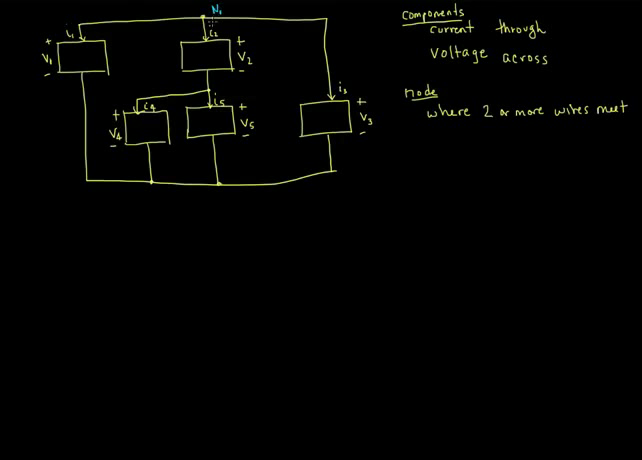 N₁
i₁
i₂
+ V₁ -
+ V₂ -
i₃
i₄
i₅
+ V₄ -
+ V₅ -
+ V₃ -
Components
current through
Voltage across
node
where 2 or more wires meet